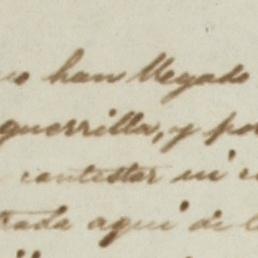 no han llegado
guerrilla, y por
contestar ni
trada aqui de